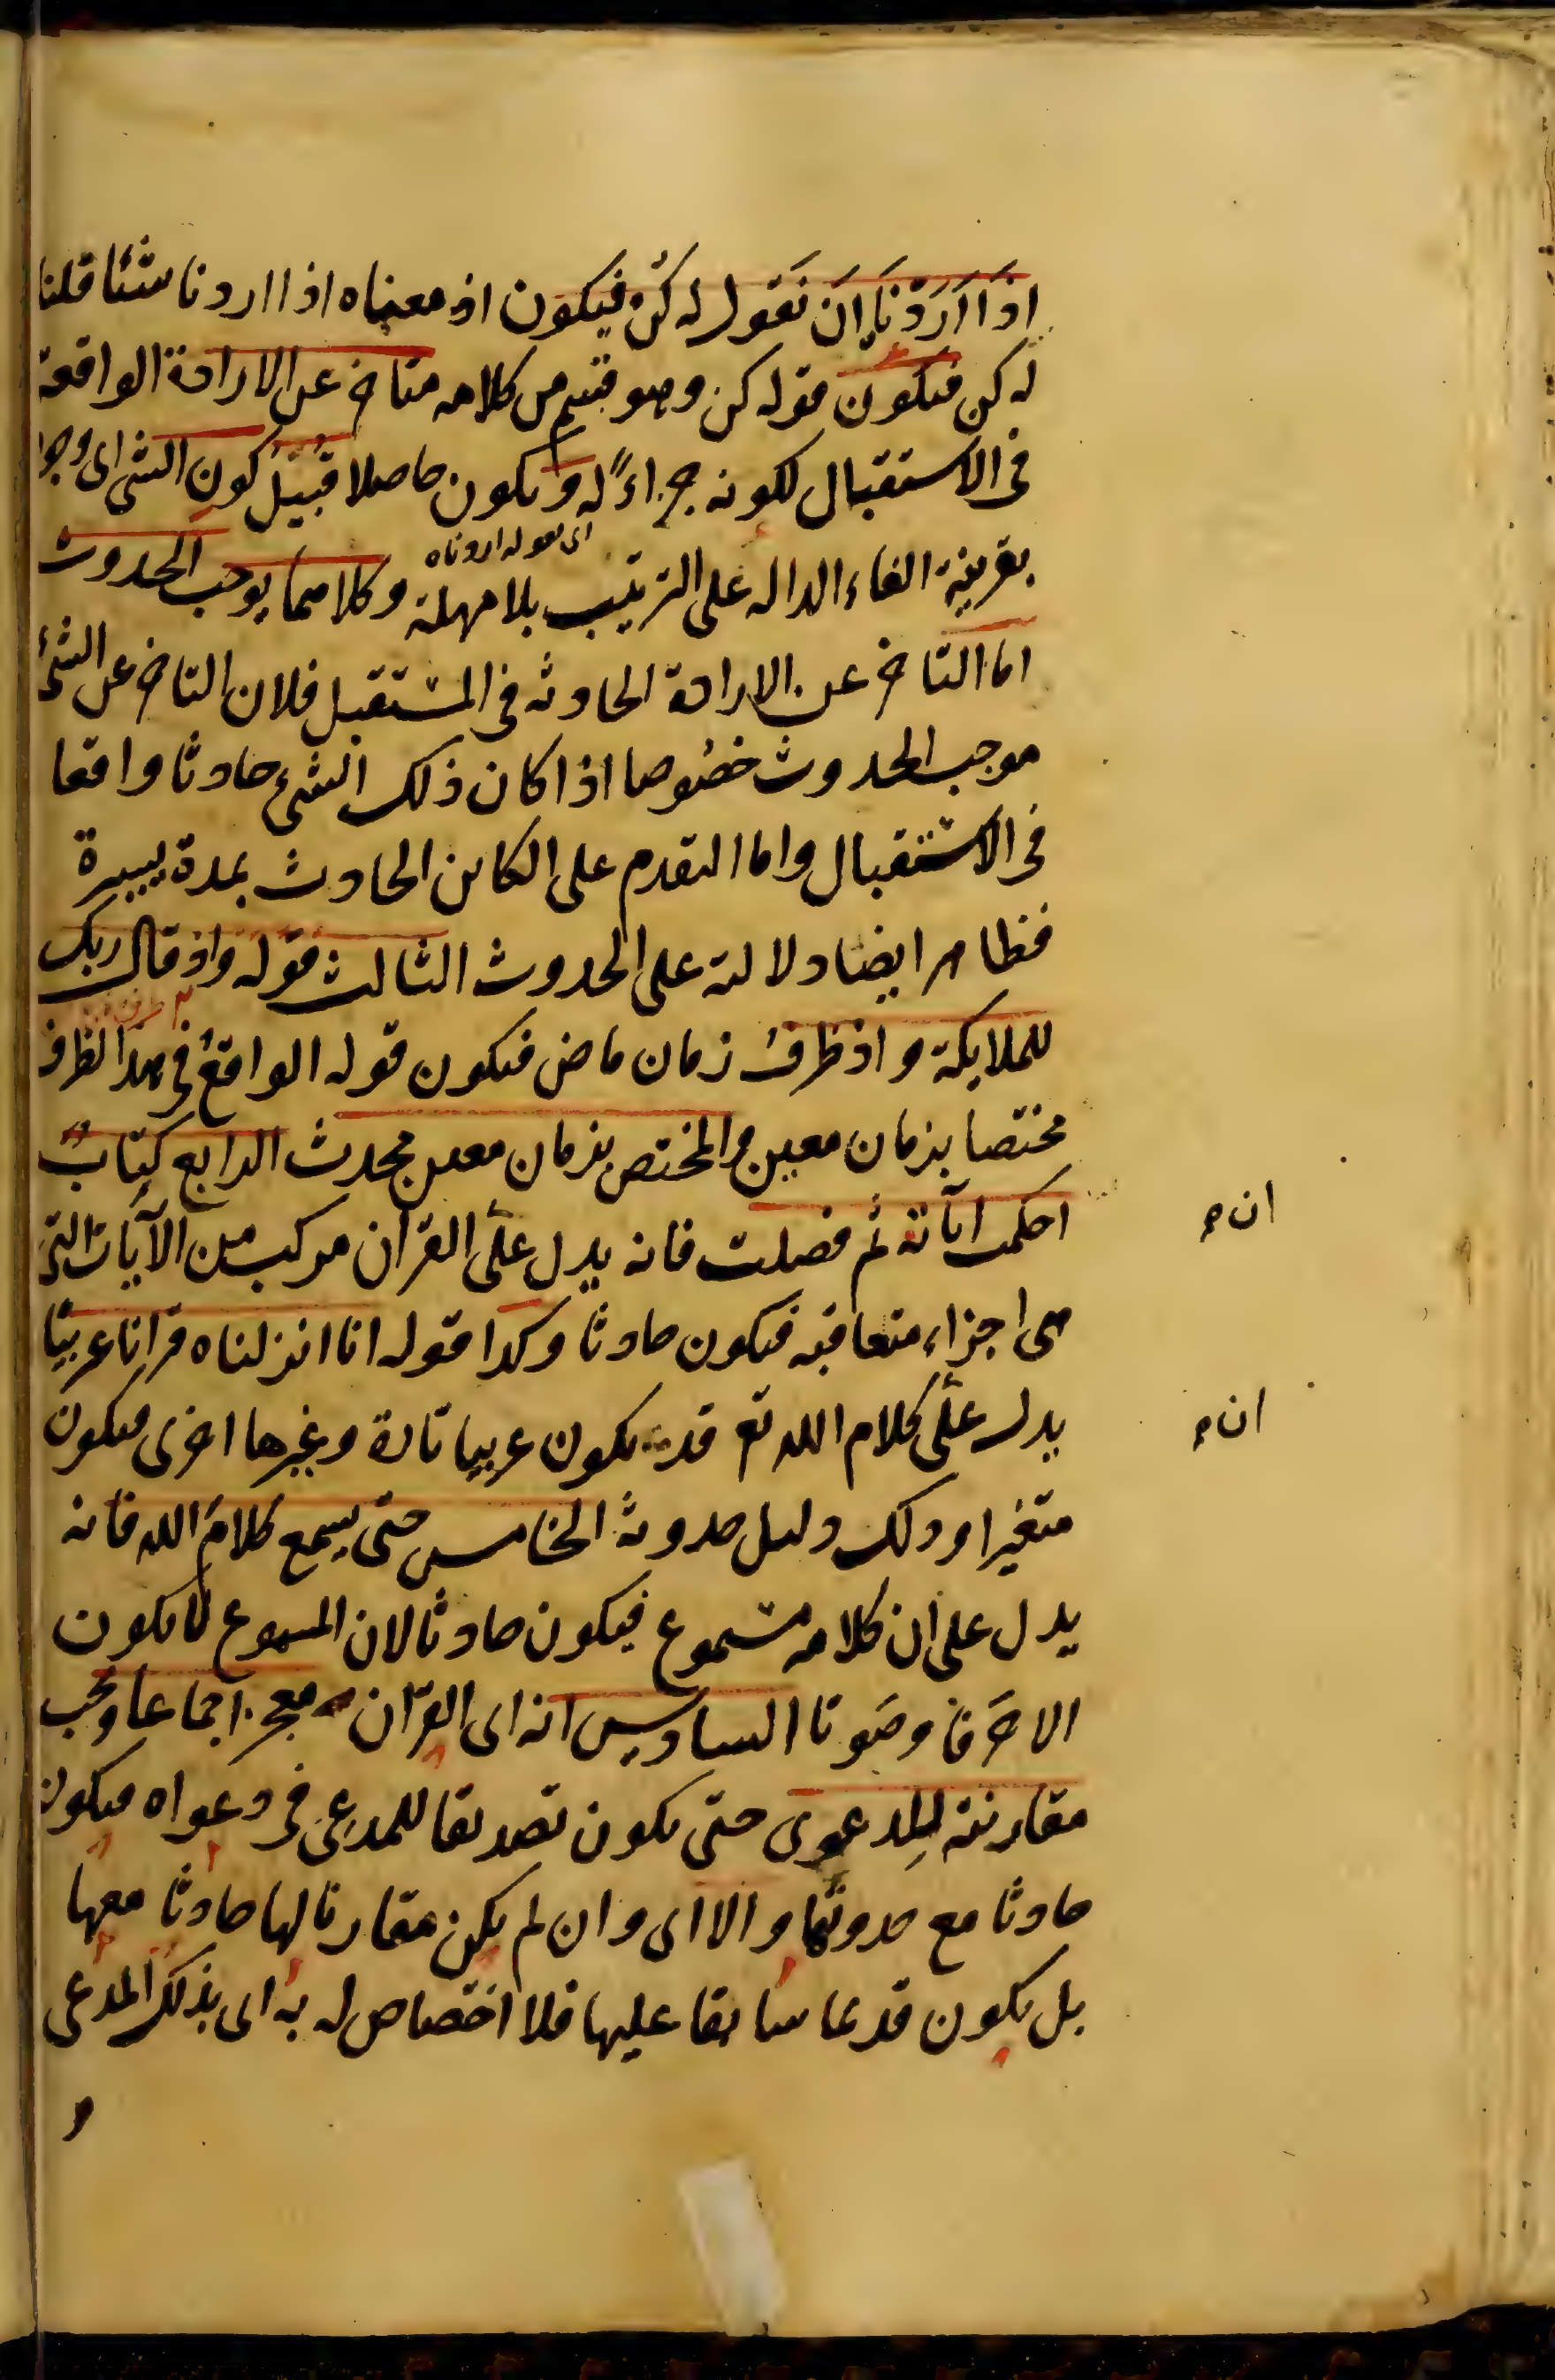 اذَا اَرَدْنَاهُ اَنْ نَقول له كُنْ فيكون اذ معناه اذا اردنا شئا قلنا
له كن فيكون فقوله كن وهو قسم من كلامه متاخر عن الارادة الواقعة
فى الاستقبال لكونه جزاءً له ويكون حاصلا قُبَيْلَ كون الشئ اى وجوده
اى لقوله اردناه
بقرينة الفاء الداله على الترتيب بلا مهلة وكلاهما يوجب الحدوث
اما التاخر عن الارادة الحادثه فى المستقبل فلان التاخر عن الشئ
موجب الحدوث خصُوصا اذا كان ذلك الشئ حادثا واقعا
فى الاستقبال واما التقدم على الكاين الحادث بمدة يسيرة
فظاهر ايضا دلالته على الحدوث الثالث قوله واذ قال ربك
للملايكة واذ ظرفُ زمان ماض فيكون قوله الواقعُ فى هذا الظرف
مختصا بزمان معين والمختص بزمان معين محدث الرابع كتابٌ
احكمت آياته ثم فصلت فانه يدل على القرآن مركب من الآيات التى
ان
هى اجزاء متعاقبه فيكون حادثا وكذا قوله انا انزلناه قرانا عربيّا
يدل على كلام الله تع قد يكون عربيا تارة وغيرها اخرى فيكون
ان
متغيرا وذلك دليل حدوثه الخامس حتى يسمع كلامَ الله فانه
يدل على ان كلامه مسموع فيكون حادثا لان المسموع لا يكون
الا حرفا وصَوتا السادس انه اى القرآن معجز اجماعا ويجب
مقارنته للدعوى حتى يكون تصديقا للمدعى فى دعواه فيكون
حادثا مع حدوثها والا اى وان لم يكن مقارنا لها حادثا معها
بل يكون قديما سابقا عليها فلا اختصاص له به اى بذلك المدعى
و